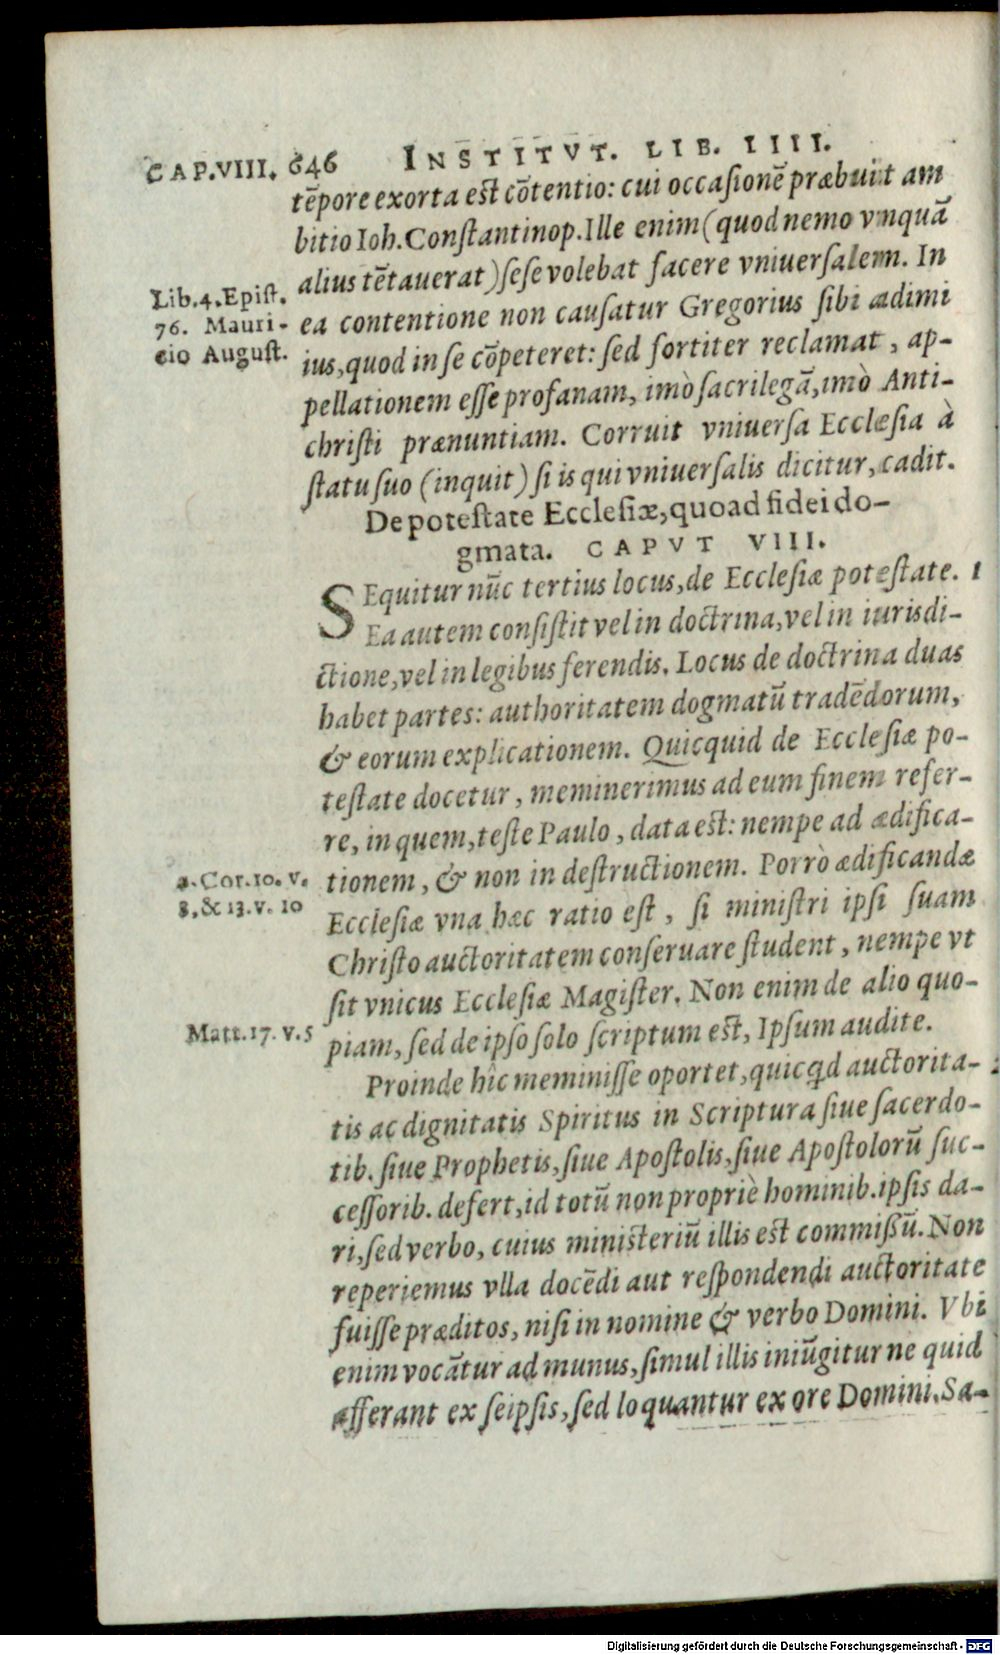 CAP.VIII. 646 INSTITVT. LIB. IIII.
tẽpore exorta est cõtentio: cui occasionẽ præbuit am
bitio Ioh. Constantinop. Ille enim (quod nemo vnquã
alius tẽtauerat) sese volebat facere vniuersalem. In
Lib.4.Epist.
76. Mauri-
cio August.
ea contentione non causatur Gregorius sibi adimi
ius, quod in se cõpeteret: sed fortiter reclamat, ap-
pellationem esse profanam, imò sacrilegã, imò Anti-
christi prænuntiam. Corruit vniuersa Ecclesia à
statu suo (inquit) si is qui vniuersalis dicitur, cadit.
De potestate Ecclesiæ, quoad fidei do-
gmata. CAPVT VIII.
SEquitur nũc tertius locus, de Ecclesiæ potestate. 1
Ea autem consistit vel in doctrina, vel in iurisdi-
ctione, vel in legibus ferendis. Locus de doctrina duas
habet partes: authoritatem dogmatũ tradẽdorum,
& eorum explicationem. Quicquid de Ecclesiæ po-
testate docetur, meminerimus ad eum finem refer-
re, in quem, teste Paulo, data est: nempe ad ædifica-
2.Cor.10. v.
8, & 13. v. 10
tionem, & non in destructionem. Porrò ædificandæ
Ecclesiæ vna hæc ratio est, si ministri ipsi suam
Christo auctoritatem conseruare student, nempe vt
sit vnicus Ecclesiæ Magister. Non enim de alio quo-
Matt.17. v.5
piam, sed de ipso solo scriptum est, Ipsum audite.
Proinde hîc meminisse oportet, quicqd auctorita- 2
tis ac dignitatis Spiritus in Scriptura siue sacerdo-
tib. siue Prophetis, siue Apostolis, siue Apostolorũ suc-
cessorib. defert, id totũ non propriè hominib. ipsis da-
ri, sed verbo, cuius ministeriũ illis est commißũ. Non
reperiemus vlla docẽdi aut respondendi auctoritate
fuisse præditos, nisi in nomine & verbo Domini. Vbi
enim vocãtur ad munus, simul illis iniũgitur ne quid
afferant ex seipsis, sed loquantur ex ore Domini. Sa-
Digitalisierung gefördert durch die Deutsche Forschungsgemeinschaft - DFG